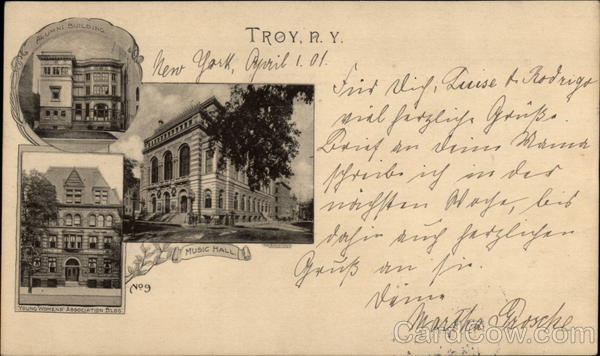 ALUMNI BUILDING
TROY, N.Y.
New York, April 1. 01.
Für Dich, Luise & Rodrigo
viel herzliche Grüße.
Brief an deine Mama
schreibe ich in der
nächsten Woche, bis
dahin auch herzlichen
Gruß an sie.
Deine
Martha Grosche
MUSIC HALL
No 9
YOUNG WOMENS' ASSOCIATION BLDG.
CardCow.com